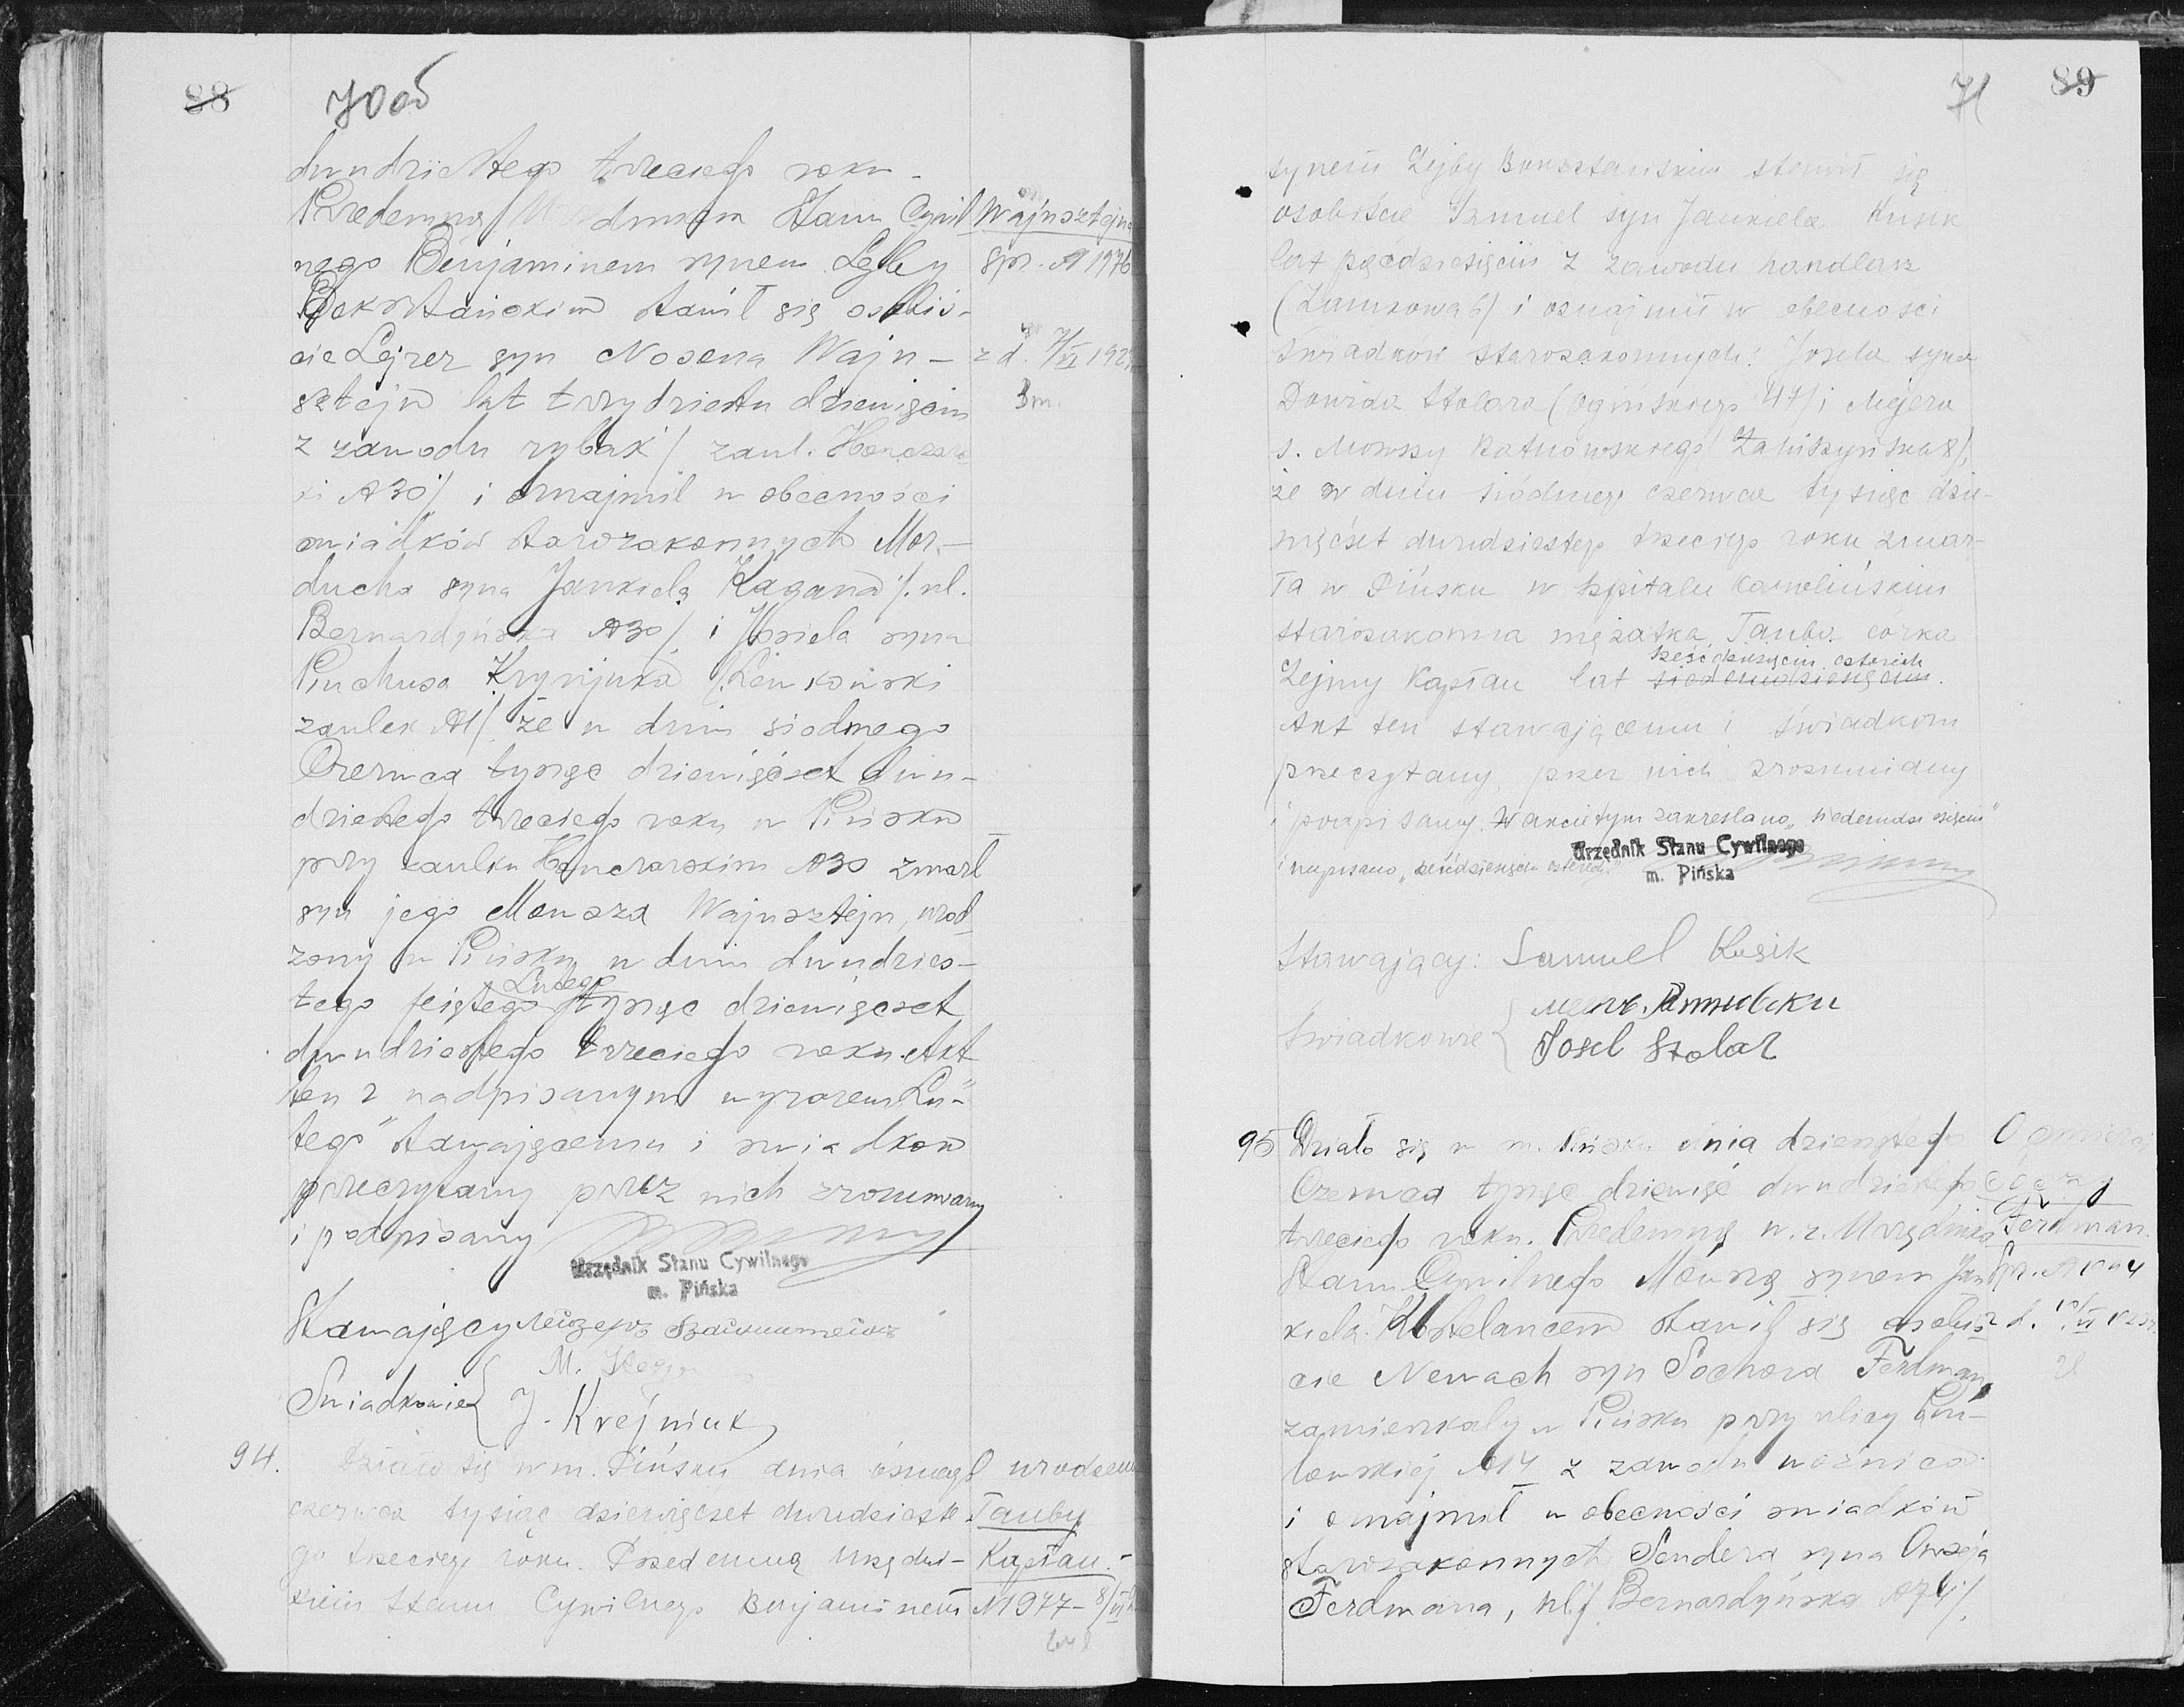 88
70 об
dwudziestego trzeciego roku.
Przedemną Urzędnikiem Stanu Cywil
nego Benjaminem synem Lejby
Bokształskim stawił się osobiś-
cie Lejzer syn Nosena Wajn-
sztejn lat trzydziestu dziewięciu
z zawodu rybak /zauł. Honczars
ki №30/ i oznajmił w obecności
świadków starozakonnych Mor-
ducha syna Jankiela Kagana /ul.
Bernardyńska №30/ i Josiela syna
Pinchusa Krejnjuka
zaułek №1/ że w dniu siódmego
Czerwca tysiąc dziewięćset dwu-
dziestego trzeciego roku w Pińsku
przy zaułku Honczarskim №30 zmarł
syn jego Mowsza Wajnsztejn, urod
zony w Pińsku w dniu dwudzies-
Lutego
tego piątego tysiąc dziewięćset
dwudziestego trzeciego roku. Akt
ten z nadpisanym wyrazem „Lu-
tego" stawającemu i świadkom
przeczytany przez nich zrozumiany
i podpisany
Urzędnik Stanu Cywilnego
m. Pińska
Stawający
Świadkowie M.
J. Krejniuk
Wajnsztejna
Spr. №1976
z d. 7/VI 192
94. Działo się w m. Pińsku dnia ósmego
czerwca tysiąc dziewięćset dwudzieste-
go trzeciego roku. Przedemną Urzędni-
kiem Stanu Cywilnego Benjaminem
Tauby
Kapłan.-
№1977- 8/VI
71
89
synem Lejby Bokształskim stawił się
osobiście Samuel syn Jankiela Kusik
lat pięćdziesięciu z zawodu handlarz
(Zamkowa 6/ i oznajmił w obecności
świadków starozakonnych: Josela syna
Dawida Stolara (Ogińskiego 47/ i Mejera
s. Mowszy Ratnowskiego /Zahiszyńska 8/,
że w dniu siódmego czerwca tysiąc dzie-
więćset dwudziestego trzeciego roku zmar-
ła w Pińsku w szpitalu Karolińskim
starozakonna mężatka Tauba córka
sześćdziesięciu czterech
Zejmy Kapłan lat siedemdziesięciu.
Akt ten stawającemu i świadkom
przeczytany, przez nich zrozumiany
i podpisany. W akcie tym zakreślono „siedemdziesięciu"
i napisano „sześćdziesięciu czterech."
Urzędnik Stanu Cywilnego
m. Pińska
Stawający: Samuel Kusik
Świadkowie
Josel Szolar
95 Działo się w m. Pińsku dnia dziewiątego
Czerwca tysiąc dziewięć dwudziestego
trzeciego roku. Przedemną w. z. Urzędnika
Stanu Cywilnego Mowszą synem Jan
kiela Kostelańcem stawił się osobiś
cie Newach syn Sochora Ferdman,
zamieszkały w Pińsku przy ulicy
№14 z zawodu woźnica
i oznajmił w obecności świadków
starozakonnych Sendera syna Owseja
Ferdmana, ul/ Bernardyńska
O śmierci
Ferdman.